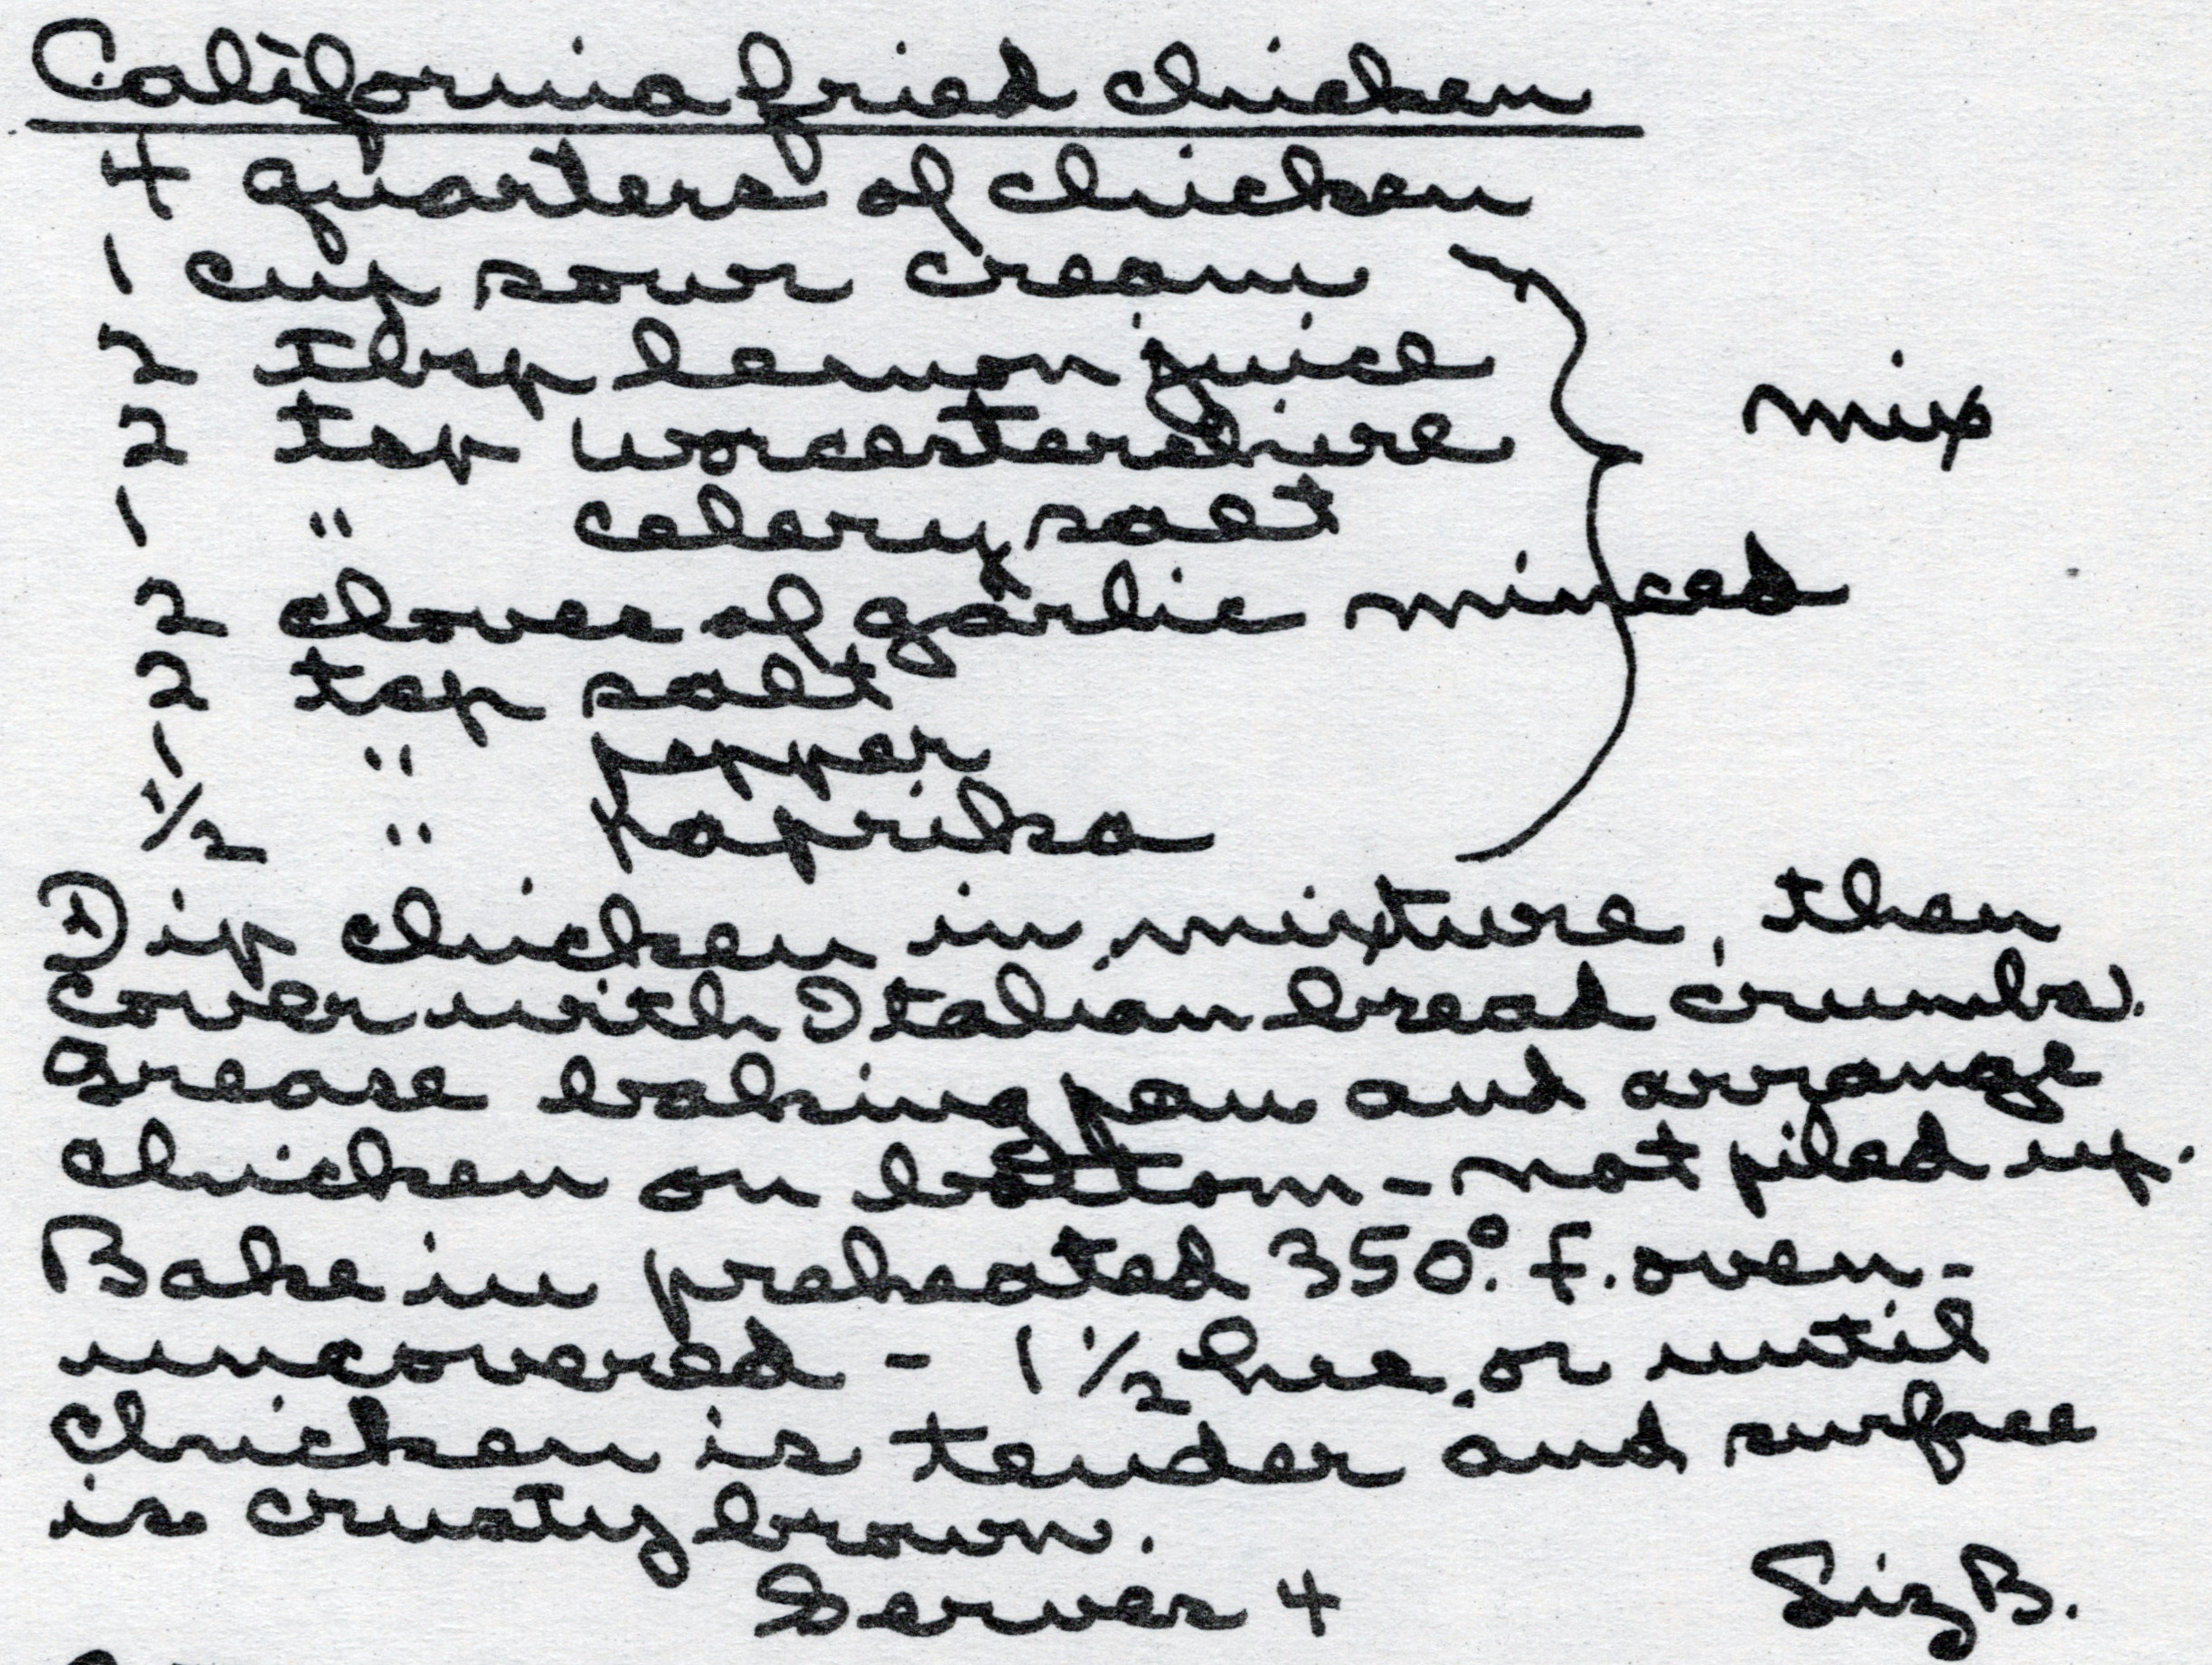 California fried chicken
4 quarters of chicken
1 cup sour cream
2 Tbsp lemon juice
2 tsp Worcestershire
mix
1 " celery salt
2 cloves of garlic minced
2 tsp salt
1 " pepper
1/2 " paprika
Dip chicken in mixture, then
cover with Italian bread crumbs.
Grease baking pan and arrange
chicken on bottom - not piled up.
Bake in preheated 350° F. oven -
uncovered - 1 1/2 hrs, or until
chicken is tender and surface
is crusty brown.
Serves 4
Liz B.